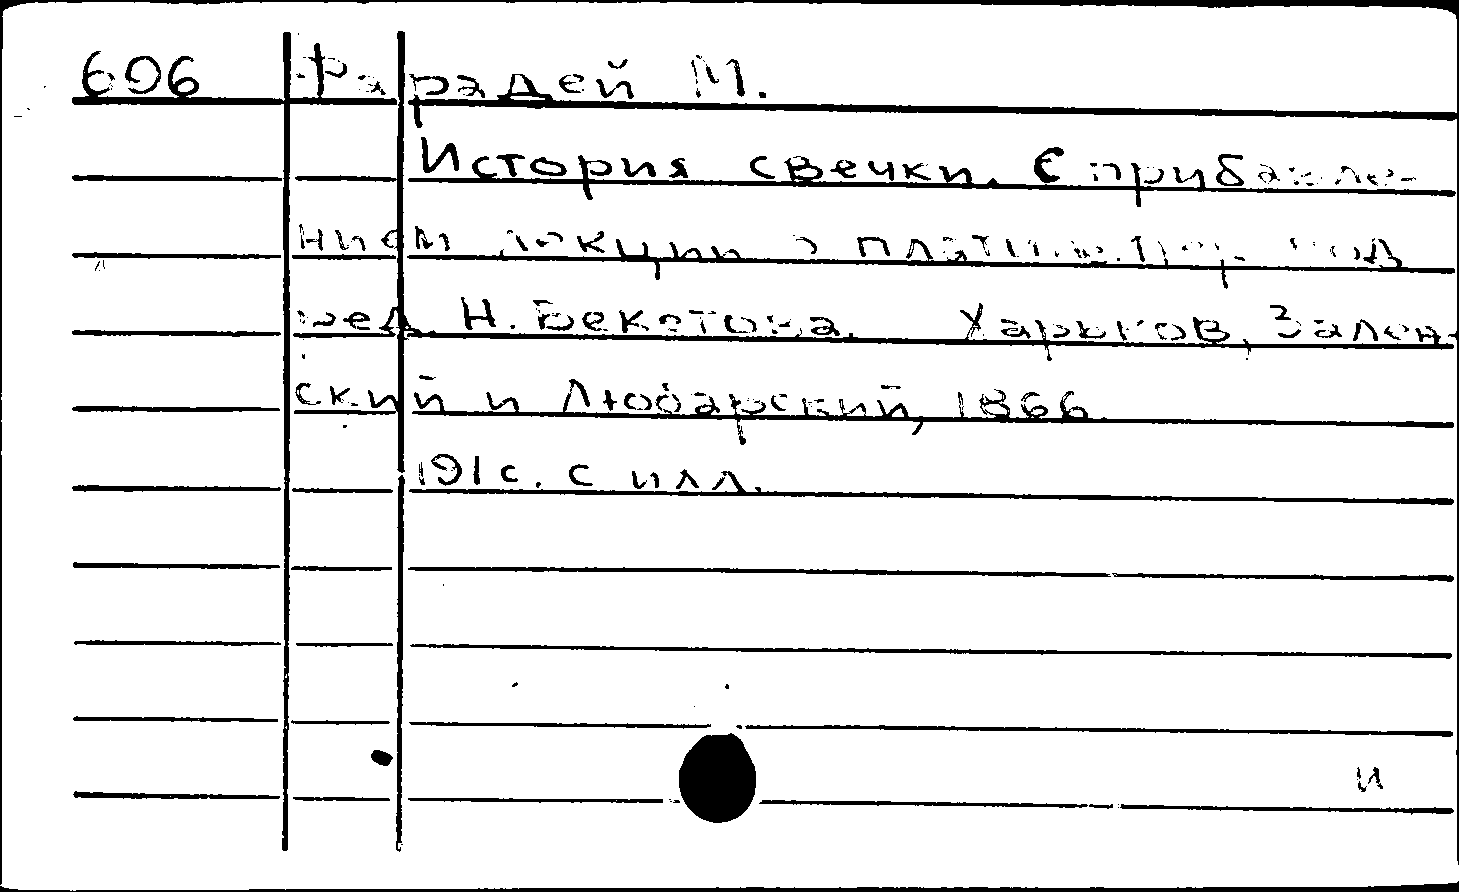 696 Фарадей М.
История свечки. С прибавле-
нием лекции о платине. Пер. под
ред. Н. Бекетова. Харьков, Зален-
ский и Любарский, 1866
191 с. с илл.
и